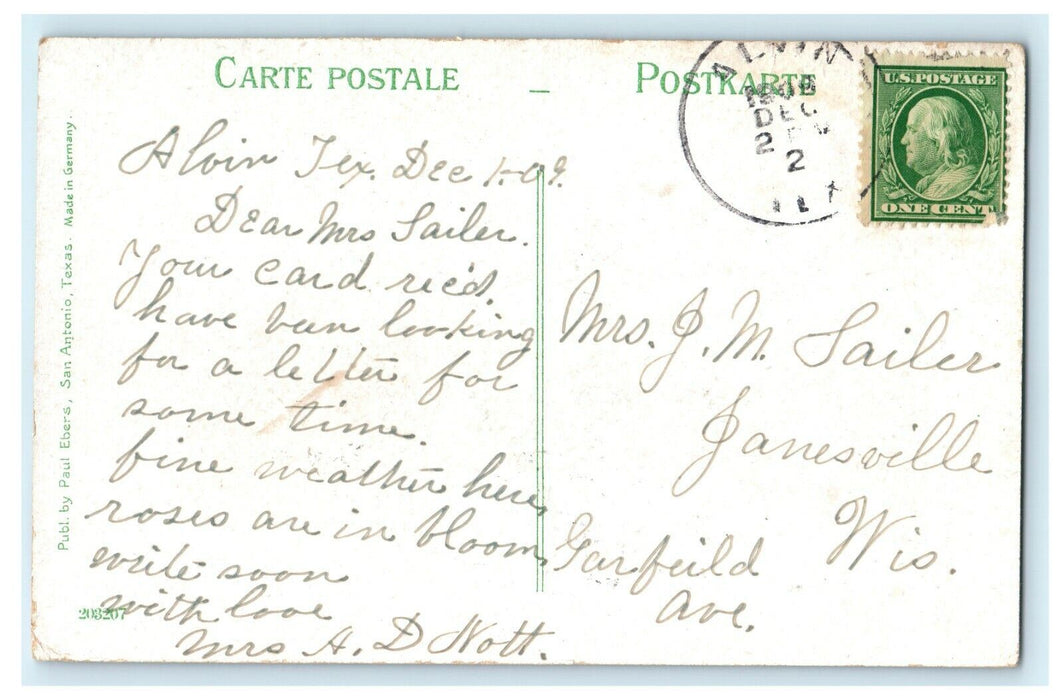 CARTE POSTALE – POSTKARTE
ALVIN
1909
DEC
2
2
TEX
U.S. POSTAGE
ONE CENT
Publ. by Paul Ebers, San Antonio, Texas. Made in Germany.
Alvin Tex. Dec 1-09.
Dear Mrs Sailer.
Your card rec'd.
have been looking
for a letter for
some time.
fine weather here,
roses are in bloom,
write soon
with love
Mrs A. D Nott.
203207
Mrs. J. M. Sailer
Janesville
Wis.
Garfeild
Ave.